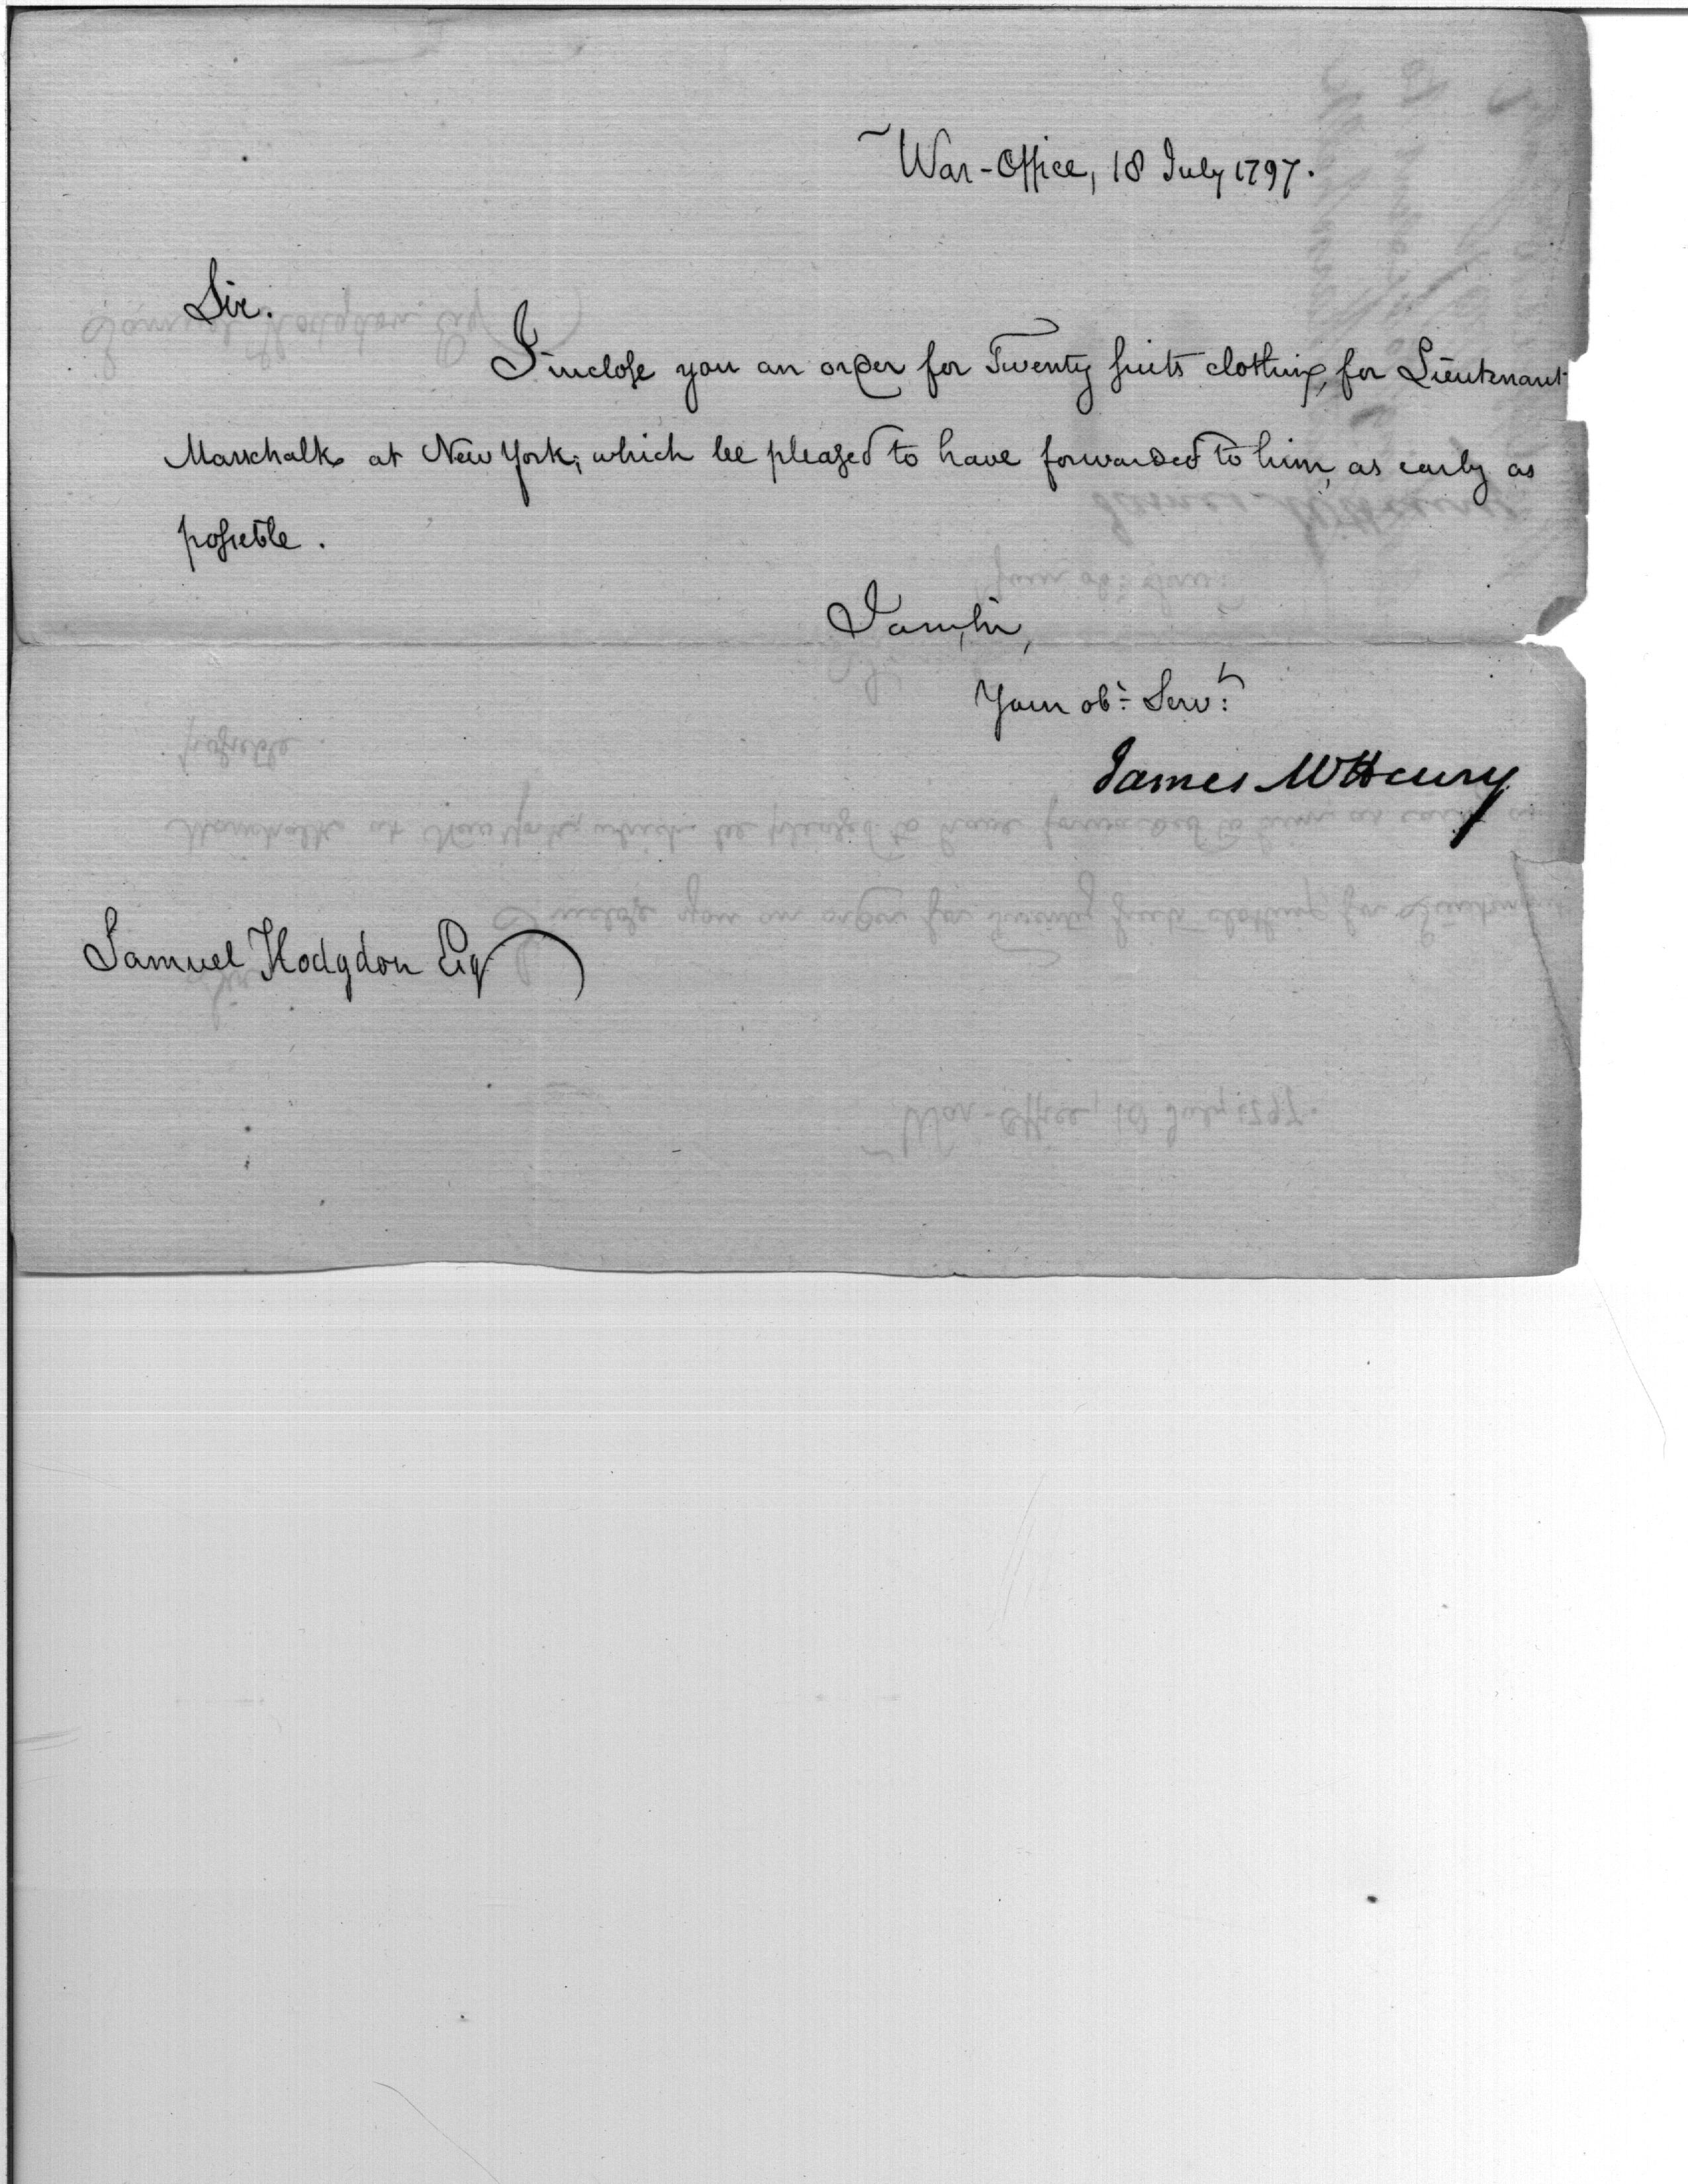 War-Office, 18 July 1797.
Sir.
I inclose you an order for Twenty suits clothing, for Lieutenant
Marschalk at New York; which be pleased to have forwarded to him, as early as
possible.
I am, Sir,
Your obt. Servt.
James McHenry
Samuel Hodgdon Esq